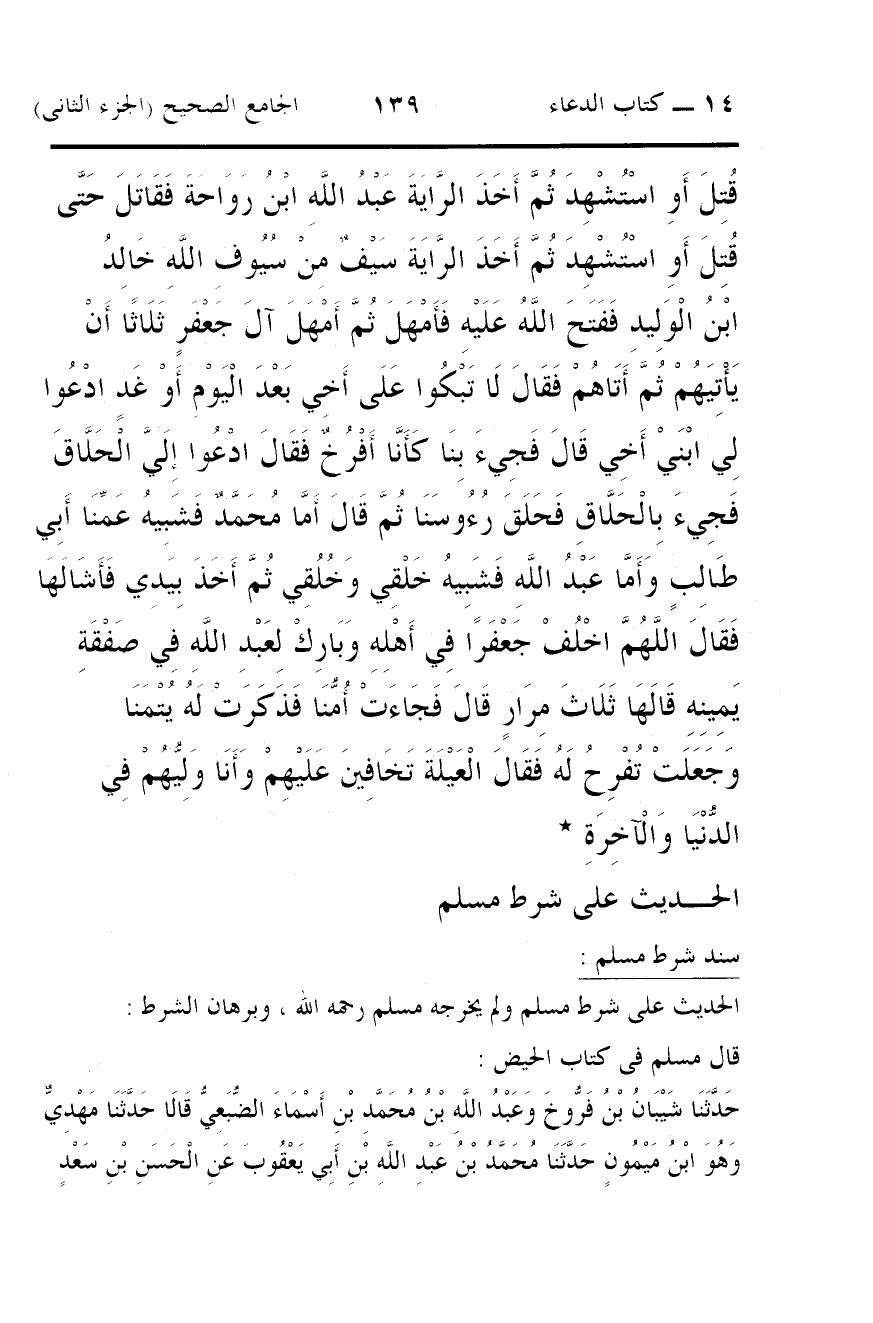 ١٤ — كتاب الدعاء ١٣٩ الجامع الصحيح (الجزء الثانى)
قُتِلَ أَوِ اسْتُشْهِدَ ثُمَّ أَخَذَ الرَّايَةَ عَبْدُ اللَّهِ ابْنُ رَوَاحَةَ فَقَاتَلَ حَتَّى
قُتِلَ أَوِ اسْتُشْهِدَ ثُمَّ أَخَذَ الرَّايَةَ سَيْفٌ مِنْ سُيُوفِ اللَّهِ خَالِدُ
ابْنُ الْوَلِيدِ فَفَتَحَ اللَّهُ عَلَيْهِ فَأَمْهَلَ ثُمَّ أَمْهَلَ آلَ جَعْفَرٍ ثَلَاثًا أَنْ
يَأْتِيَهُمْ ثُمَّ أَتَاهُمْ فَقَالَ لَا تَبْكُوا عَلَى أَخِي بَعْدَ الْيَوْمِ أَوْ غَدٍ ادْعُوا
لِي ابْنَيْ أَخِي قَالَ فَجِيءَ بِنَا كَأَنَّا أَفْرُخٌ فَقَالَ ادْعُوا إِلَيَّ الْحَلَّاقَ
فَجِيءَ بِالْحَلَّاقِ فَحَلَقَ رُءُوسَنَا ثُمَّ قَالَ أَمَّا مُحَمَّدٌ فَشَبِيهُ عَمِّنَا أَبِي
طَالِبٍ وَأَمَّا عَبْدُ اللَّهِ فَشَبِيهُ خَلْقِي وَخُلُقِي ثُمَّ أَخَذَ بِيَدِي فَأَشَالَهَا
فَقَالَ اللَّهُمَّ اخْلُفْ جَعْفَرًا فِي أَهْلِهِ وَبَارِكْ لِعَبْدِ اللَّهِ فِي صَفْقَةِ
يَمِينِهِ قَالَهَا ثَلَاثَ مِرَارٍ قَالَ فَجَاءَتْ أُمُّنَا فَذَكَرَتْ لَهُ يُتْمَنَا
وَجَعَلَتْ تُفْرِحُ لَهُ فَقَالَ الْعَيْلَةَ تَخَافِينَ عَلَيْهِمْ وَأَنَا وَلِيُّهُمْ فِي
الدُّنْيَا وَالْآخِرَةِ *
الحـــديث على شرط مسلم
سند شرط مسلم :
الحديث على شرط مسلم ولم يخرجه مسلم رحمه الله ، وبرهان الشرط :
قال مسلم فى كتاب الحيض :
حَدَّثَنَا شَيْبَانُ بْنُ فَرُّوخَ وَعَبْدُ اللَّهِ بْنُ مُحَمَّدِ بْنِ أَسْمَاءَ الضُّبَعِيُّ قَالَا حَدَّثَنَا مَهْدِيٌّ
وَهُوَ ابْنُ مَيْمُونٍ حَدَّثَنَا مُحَمَّدُ بْنُ عَبْدِ اللَّهِ بْنِ أَبِي يَعْقُوبَ عَنِ الْحَسَنِ بْنِ سَعْدٍ